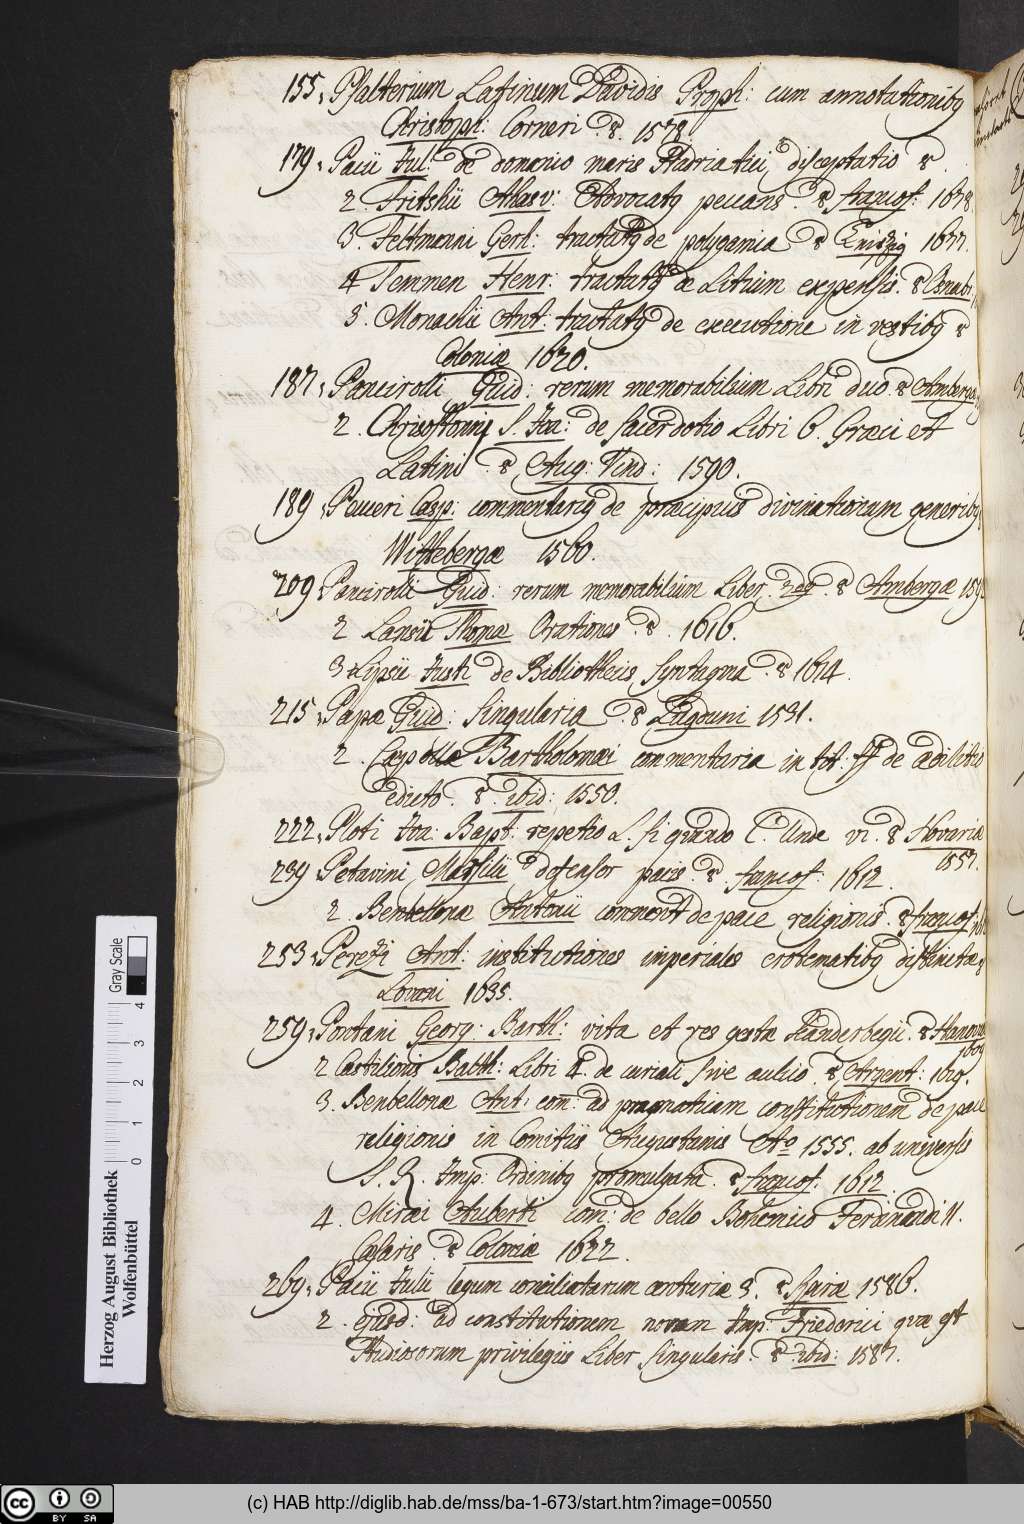 155. Psalterium Latinum Davidis Proph: cum annotationibq
Christoph: Corneri . &. 1578.
179. Pacii Jul: de domanio maris Adriatici, disceptatio &.
2. Fritshii Ahasv: Advocatq peccans. & francof: 1678.
3. Feltmanni Gerh: tractatq de polygamia & Leipzig 1677.
4 Temmen Henr: tractatq de Litium expensis. & Osnab:
5. Monachi Ant: tractatq de executione in vestibq &
Coloniæ 1620.
187. Pancirolli Guid: rerum memorabilium Libri duo. & Ambergæ
2. Chrisostomi S. Joa: de sacerdotio Libri 6. Græci et
Latini . & Aug: Vind: 1590.
189. Peuceri Casp: commentariq de præcipuis divinationum generibq
Wittebergæ 1560.
209. Pancirolli Guid: rerum memorabilium Liber 2dq. & Ambergæ
2 Lansii Thomæ Orationes . &. 1616.
3. Lipsii Justi de Bibliothecis Syntagma . & 1614.
215. Papæ Guid: Singularia . & Lugduni 1531.
2. Cæpollæ Bartholomæi commentaria in tit: ff de ædilitio
edicto . &. ibid: 1550.
222. Ploti Joa: Bapt: repetio L. si quando C. Unde vi. & Novariæ
1557.
239. Patavini Marsilii defensor pacis. & francof: 1612.
2. Benbellonæ Antonii comment de pace religionis. & francof:
253. Perezi Ant: institutiones imperiales erotematibq distinctæ &
Lovani 1635.
259. Pontani Georg: Barth: vita et res gestæ Scanderbegii. & Hanoviæ
1609
2 Castilionis Balth: Libri 4. de curiali sive aulico. & Argent: 1619.
3. Benbellonæ Ant: com: ad pragmaticam constitutionem de pace
religionis in Comitiis Augustanis Ao 1555. ab universis
S. R. Imp: Ordinibq promulgata. & francof: 1612
4. Miræi Auberti com: de bello Bohemico Ferdinandi II.
Cæsaris. & Coloniæ 1622.
269. Pacii Julii legum conciliatarum centuriæ 3. & Spiræ 1586.
2. ejusd: ad constitutionem novam Imp: Friederici quæ est
Studiosorum privilegiis Liber singularis: & ibid: 1587.
Herzog August Bibliothek
Wolfenbüttel
0 1 2 3 4 Gray Scale
(c) HAB http://diglib.hab.de/mss/ba-1-673/start.htm?image=00550
cc BY SA